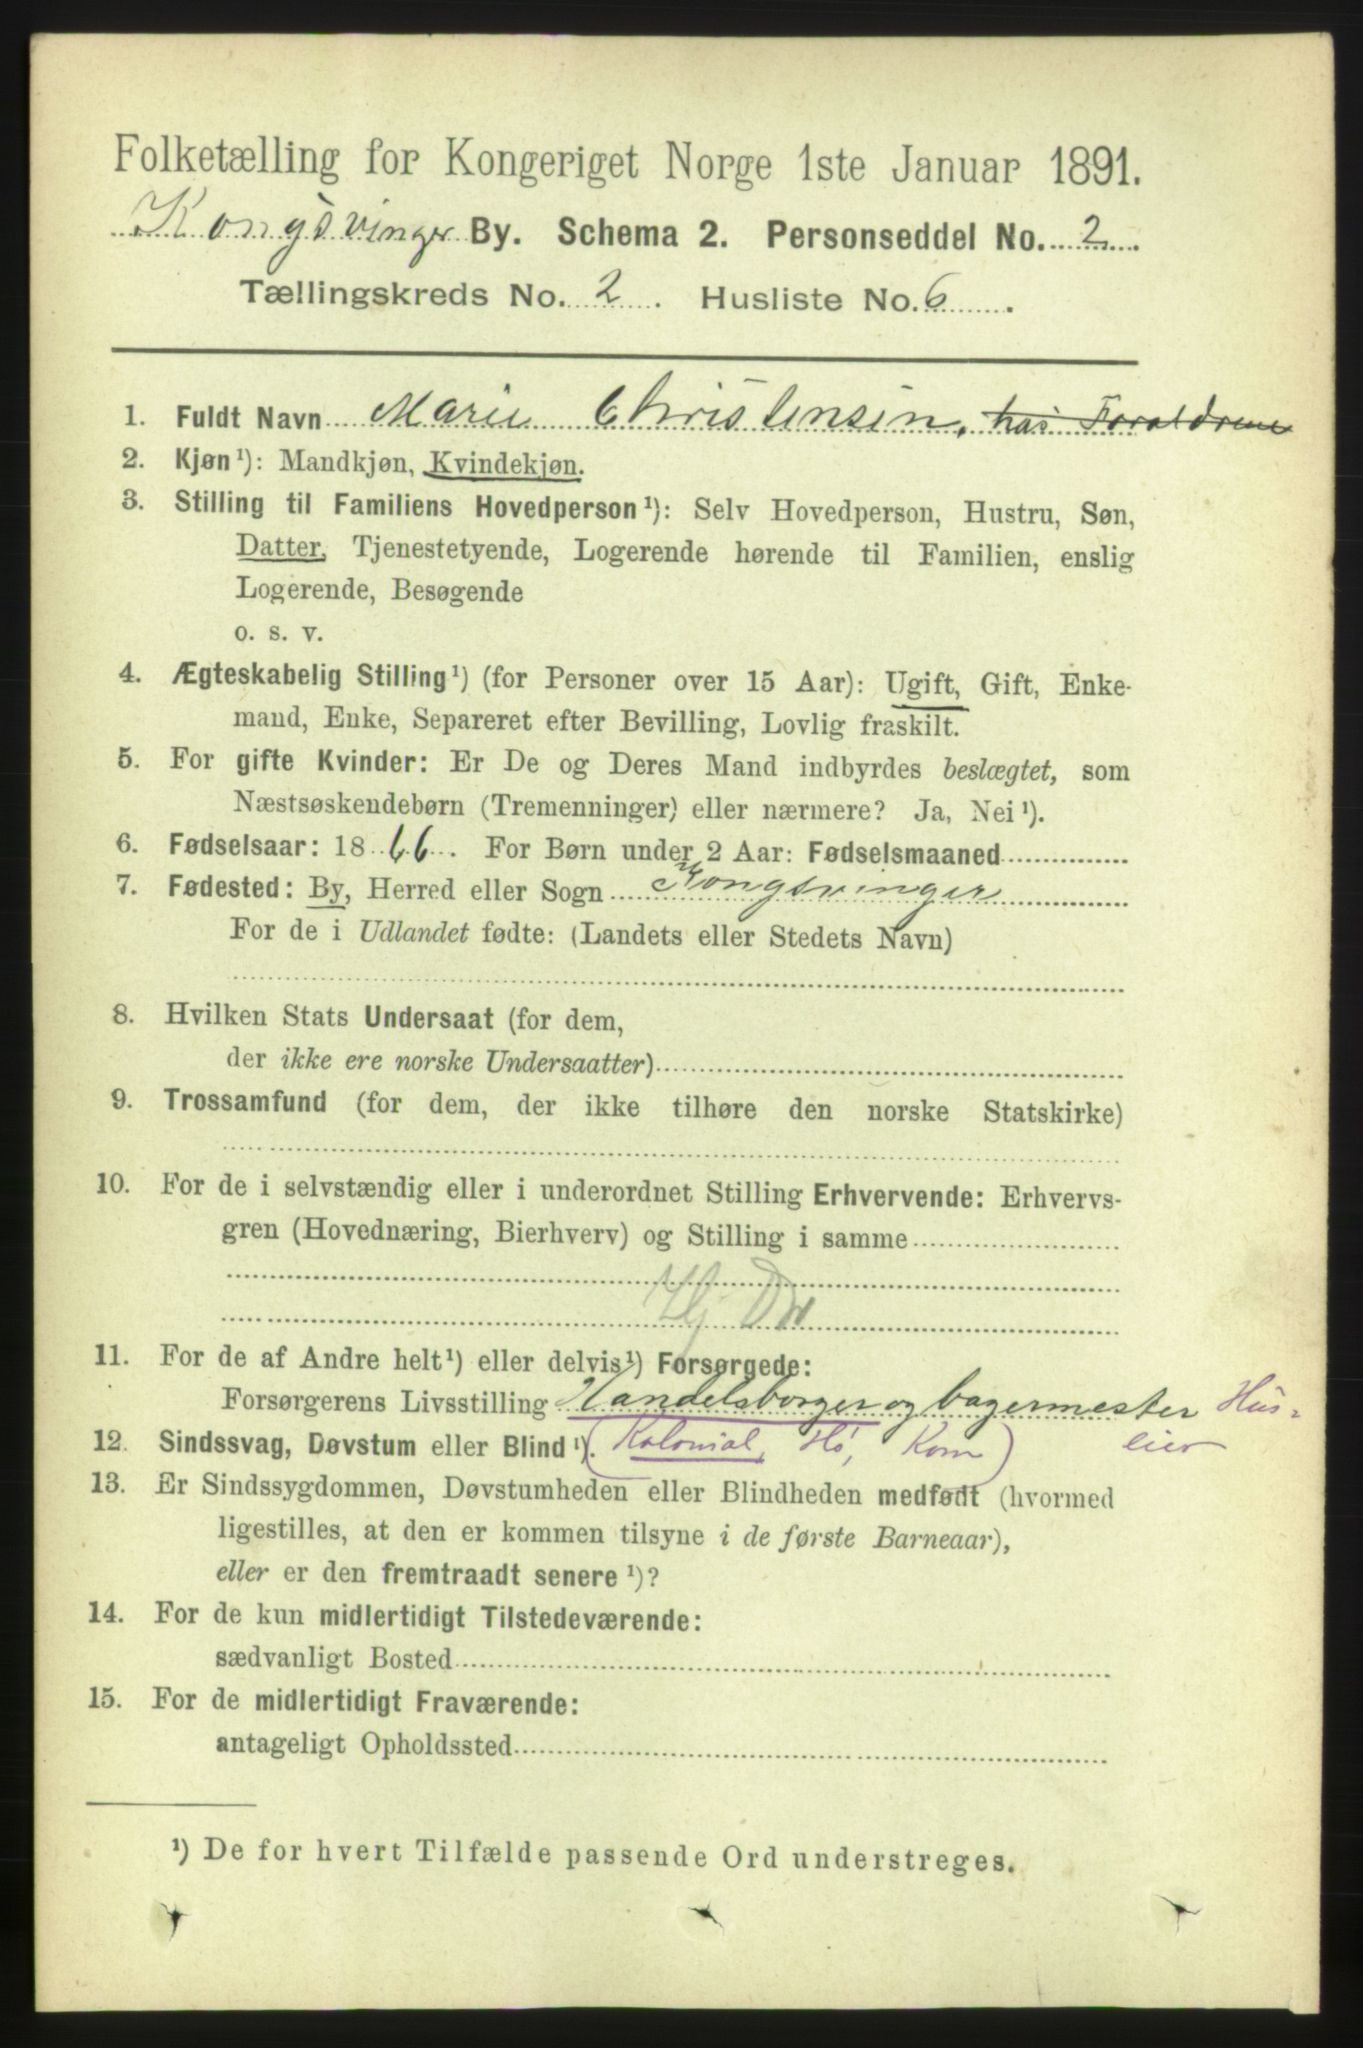 Folketælling for Kongeriget Norge 1ste Januar 1891.
Kongsvinger By. Schema 2. Personseddel No. 2.
Tællingskreds No. 2. Husliste No. 6.
1. Fuldt Navn Marie Christensen, hos Foraldrene
2. Kjøn¹): Mandkjøn, Kvindekjøn.
3. Stilling til Familiens Hovedperson¹): Selv Hovedperson, Hustru, Søn,
Datter, Tjenestetyende, Logerende hørende til Familien, enslig
Logerende, Besøgende
o. s. v.
4. Ægteskabelig Stilling¹) (for Personer over 15 Aar): Ugift, Gift, Enke-
mand, Enke, Separeret efter Bevilling, Lovlig fraskilt.
5. For gifte Kvinder: Er De og Deres Mand indbyrdes beslægtet, som
Næstsøskendebørn (Tremenninger) eller nærmere? Ja, Nei¹).
6. Fødselsaar: 1866. For Børn under 2 Aar: Fødselsmaaned
7. Fødested: By, Herred eller Sogn Kongsvinger
For de i Udlandet fødte: (Landets eller Stedets Navn)
8. Hvilken Stats Undersaat (for dem,
der ikke ere norske Undersaatter)
9. Trossamfund (for dem, der ikke tilhøre den norske Statskirke)
10. For de i selvstændig eller i underordnet Stilling Erhvervende: Erhvervs-
gren (Hovednæring, Bierhverv) og Stilling i samme
Hj
11. For de af Andre helt¹) eller delvis¹) Forsørgede:
Forsørgerens Livsstilling Handelsborger og bagermester Hus-
eier
12. Sindssvag, Døvstum eller Blind¹). (Kolonial, Hø, Korn)
13. Er Sindssygdommen, Døvstumheden eller Blindheden medfødt (hvormed
ligestilles, at den er kommen tilsyne i de første Barneaar),
eller er den fremtraadt senere¹)?
14. For de kun midlertidigt Tilstedeværende:
sædvanligt Bosted
15. For de midlertidigt Fraværende:
antageligt Opholdssted
¹) De for hvert Tilfælde passende Ord understreges.